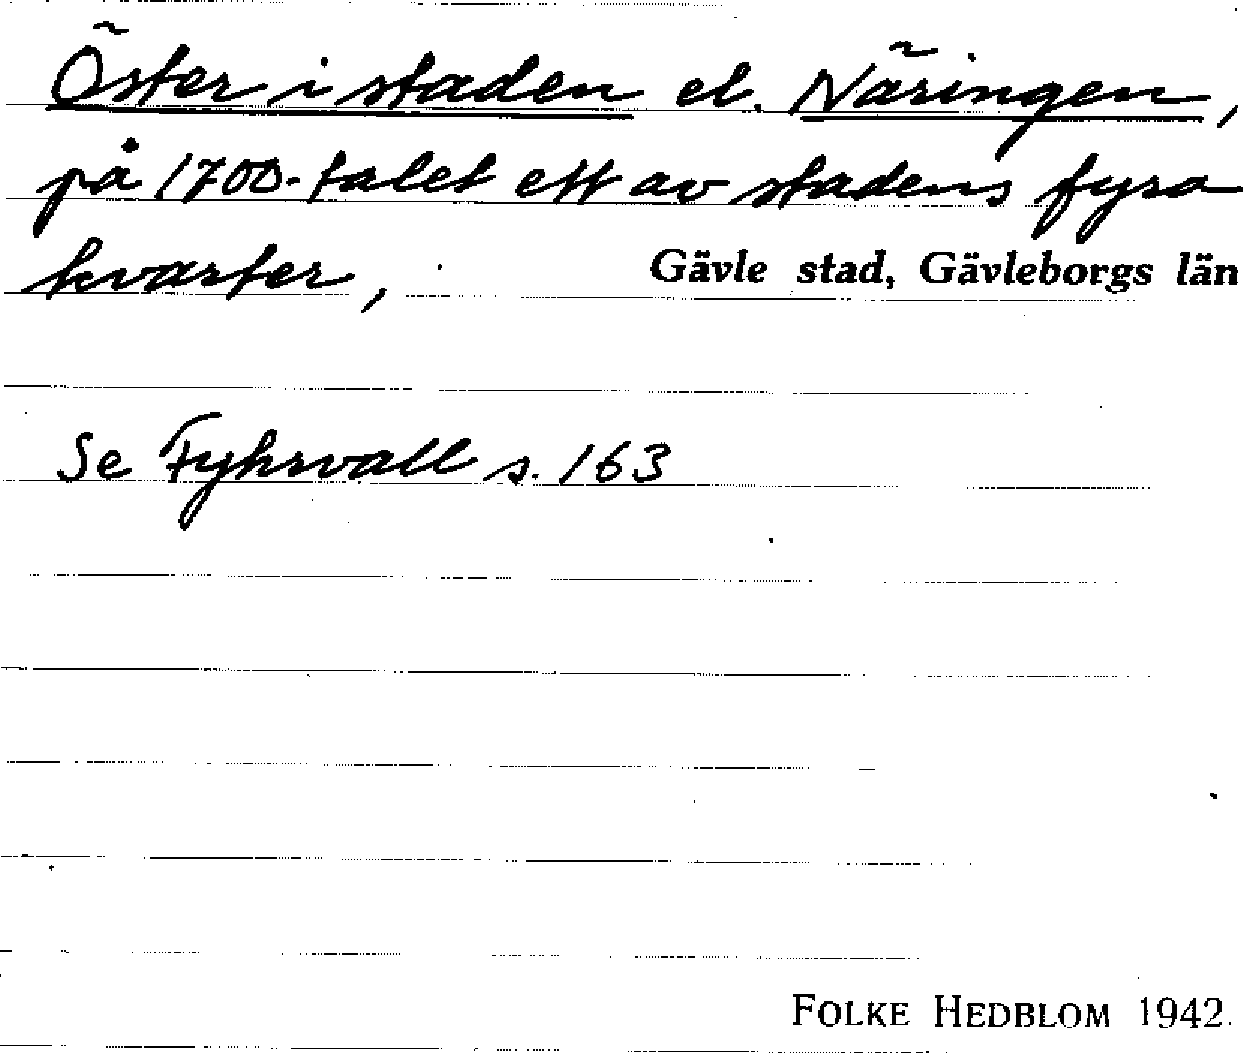 Öster i staden el. Näringen,
på 1700-talet ett av stadens fyra
kvarter, Gävle stad, Gävleborgs län
Se Fyhrvall s. 163
FOLKE HEDBLOM 1942.